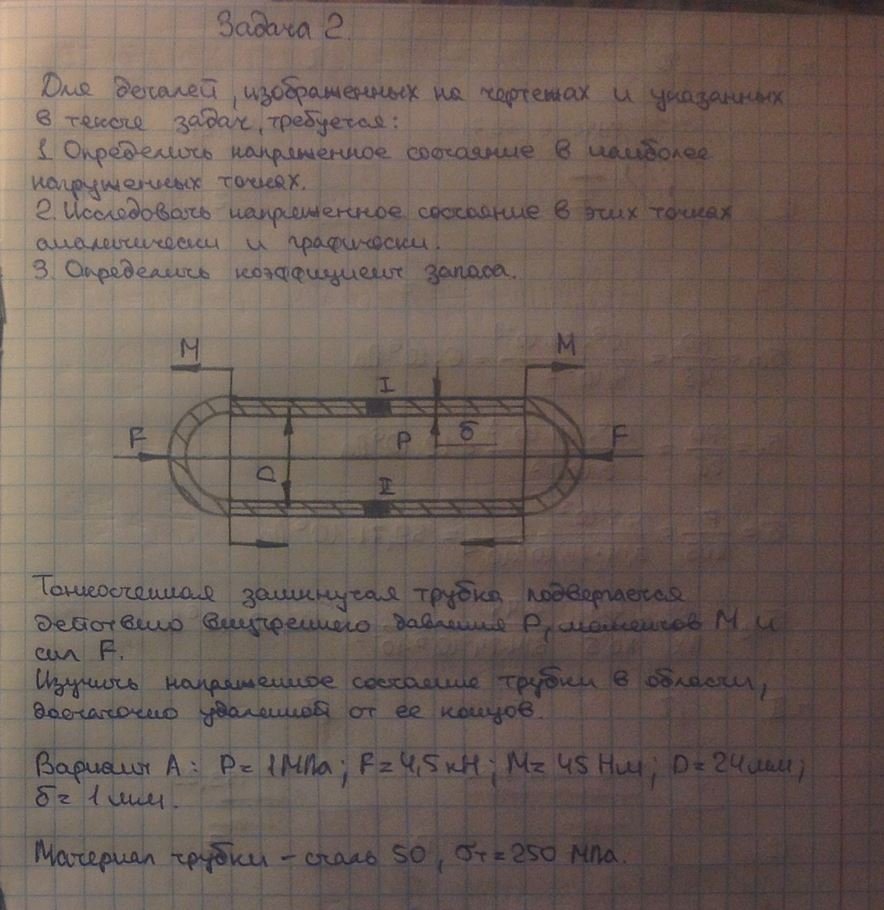 Задача 2.
Для деталей, изображенных на чертежах и указанных
в тексте задач, требуется:
1. Определить напряженное состояние в наиболее
нагруженных точках.
2. Исследовать напряженное состояние в этих точках
аналитически и графически.
3. Определить коэффициент запаса.
M
M
I
F
P
δ
F
D
II
Тонкостенная замкнутая трубка подвергается
действию внутреннего давления P, моментов M и
сил F.
Изучить напряженное состояние трубки в области,
достаточно удаленной от ее концов.
Вариант А: P = 1 МПа; F = 4,5 кН; M = 45 Нм; D = 24 мм;
δ = 1 мм.
Материал трубки - сталь 50, σт = 250 МПа.